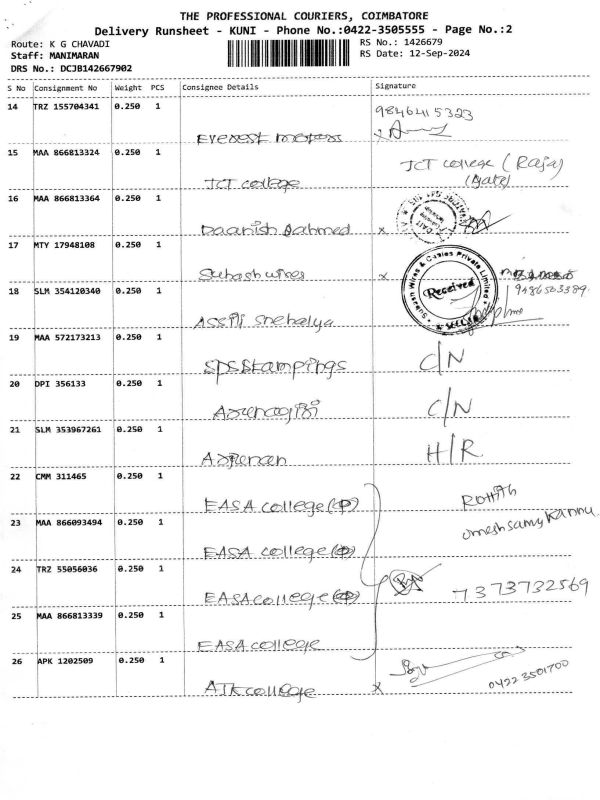 THE PROFESSIONAL COURIERS, COIMBATORE
Delivery Runsheet - KUNI - Phone No.:0422-3505555 - Page No.:2
Route: K G CHAVADI
RS No.: 1426679
Staff: MANIMARAN
RS Date: 12-Sep-2024
DRS No.: DCJB142667902
S No Consignment No Weight PCS Consignee Details Signature
14 TRZ 155704341 0.250 1 9846415323
Everest motors
15 MAA 866813324 0.250 1 JCT college (Raja)
JCT college
16 MAA 866813364 0.250 1
Daanish Aahmed x
17 MTY 17948108 0.250 1
Subash wires x
Subash Wires & Cables Private Limited
Received
18 SLM 354120340 0.250 1 9486503389
Assili Snehalya
19 MAA 572173213 0.250 1 C/N
SPS Stampings
20 DPI 356133 0.250 1 C/N
21 SLM 353967261 0.250 1 H/R
22 CMM 311465 0.250 1
EASA college
23 MAA 866093494 0.250 1
EASA college
24 TRZ 55056036 0.250 1 7373732569
EASA college
25 MAA 866813339 0.250 1
EASA college
26 APK 1202509 0.250 1
AJK college x 0422 3501700